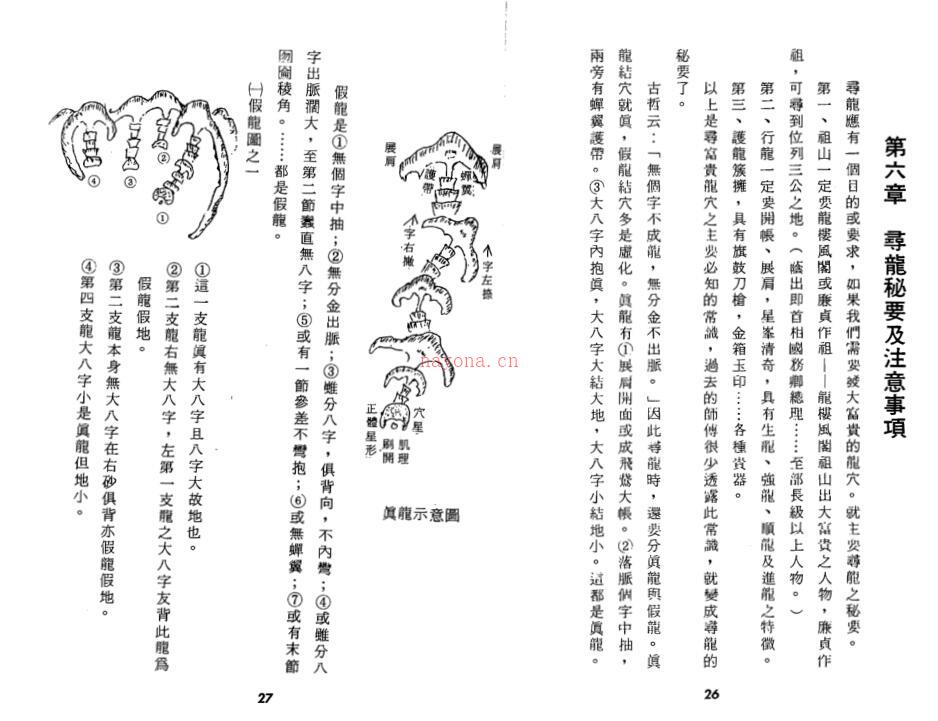 第六章　尋龍秘要及注意事項
尋龍應有一個目的或要求，如果我們需要發大富貴的龍穴。就主要尋龍之秘要。
第一、祖山一定要龍樓風閣或廉貞作祖——龍樓風閣祖山出大富貴之人物，廉貞作
祖，可尋到位列三公之地。（蔭出即首相國務卿總理……至部長級以上人物。）
第二、行龍一定要開帳、展肩，星峯清奇，具有生龍、強龍、順龍及進龍之特徵。
第三、護龍簇擁，具有旗鼓刀槍，金箱玉印……各種貴器。
以上是尋富貴龍穴之主要必知的常識，過去的師傅很少透露此常識，就變成尋龍的
秘要了。
古哲云：「無個字不成龍，無分金不出脈。」因此尋龍時，還要分眞龍與假龍。眞
龍結穴就眞，假龍結穴多是虛化。眞龍有①展肩開面或成飛鵞大帳。②落脈個字中抽，
兩旁有蟬翼護帶。③大八字內抱眞，大八字大結大地，大八字小結地小。這都是眞龍。
26
展肩
展肩
蟬翼
護帶
↑字左撇
↑字右撇
穴星
肌理
刷開
正體星形
眞龍示意圖
假龍是①無個字中抽；②無分金出脈；③雖分八字，俱背向，不內彎；④或雖分八
字出脈濶大，至第二節蠢直無八字；⑤或有一節參差不彎抱；⑥或無蟬翼；⑦或有末節
囫圇稜角。……都是假龍。
㈠假龍圖之一
①
②
③
④
①這一支龍眞有大八字且八字大故地也。
②第二支龍右無大八字，左第一支龍之大八字友背此龍爲
假龍假地。
③第二支龍本身無大八字在右砂俱背亦假龍假地。
④第四支龍大八字小是眞龍但地小。
27
nayona.cn